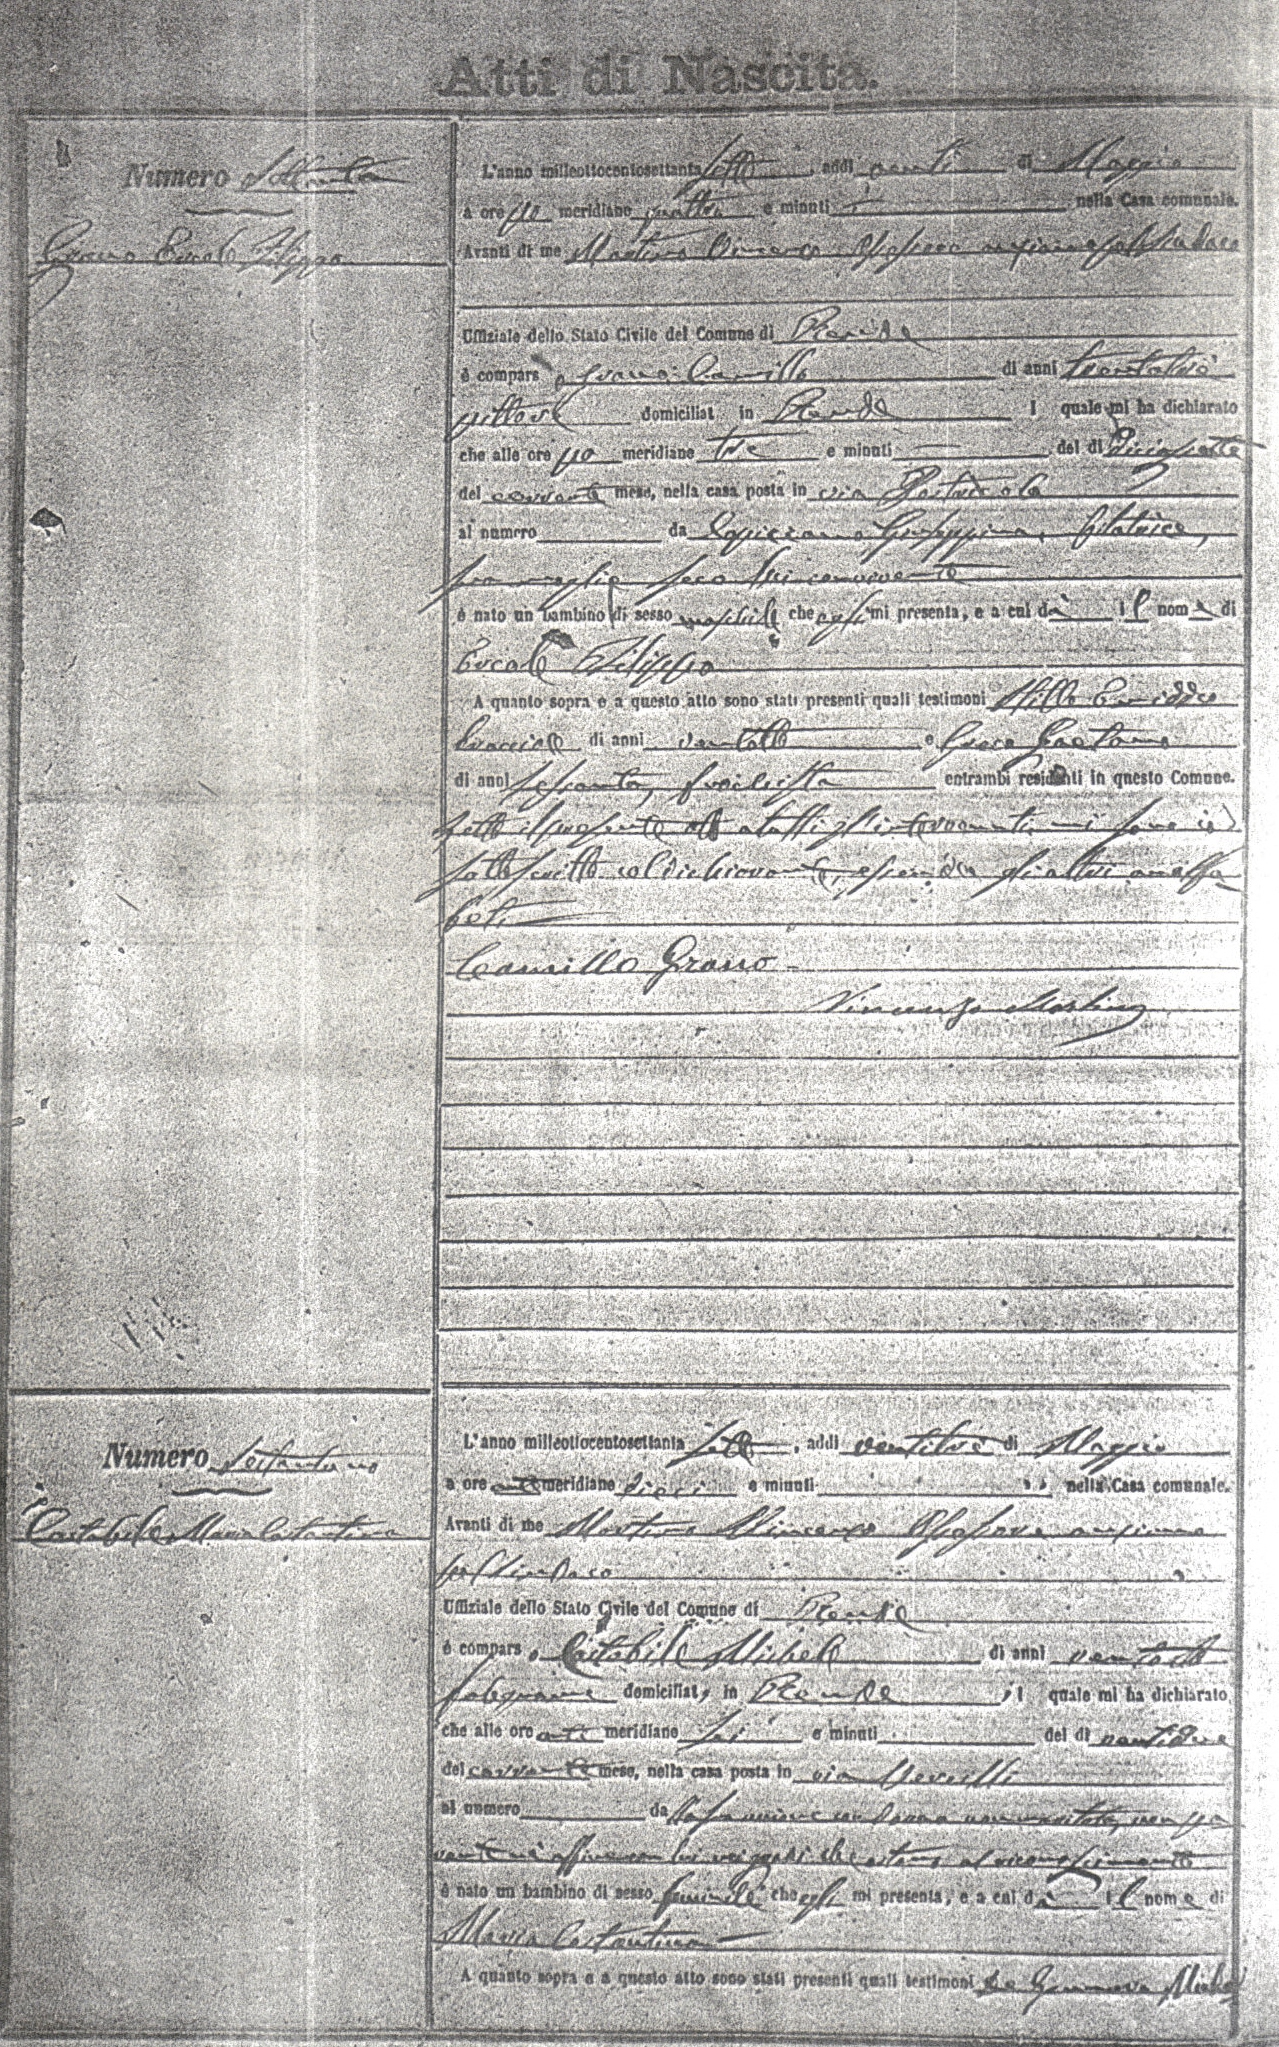 Atti di Nascita.
Numero Settanta
Grano Ercole Filippo
L'anno milleottocentosettanta sette, addi venti di Maggio
a ore po meridiane quattro e minuti nella Casa comunale.
Avanti di me Martino Vincenzo Assessore anziano pel Sindaco
Uffiziale dello Stato Civile del Comune di Rende
è compars o Grano Camillo di anni trentatrè
pittore domiciliat in Rende l quale mi ha dichiarato
che alle ore po meridiane tre e minuti del dì diciassette
del corrente mese, nella casa posta in via
al numero da Giuseppina, filatrice,
sua moglie seco lui convivente
è nato un bambino di sesso maschile che egli mi presenta, e a cui dà il nome di
Ercole Filippo
A quanto sopra e a questo atto sono stati presenti quali testimoni
di anni ventotto e Greco Gaetano
di anni sessanta, entrambi residenti in questo Comune.
Letto il presente atto a tutti gl'intervenuti, mi sono io
sottoscritto col dichiarante, essendo gli altri analfa
beti
Camillo Grano
Vincenzo Martino
Numero Settantuno
Castabile Maria Costantina
L'anno milleottocentosettanta sette, addi ventitrè di Maggio
a ore anti meridiane dieci e minuti nella Casa comunale.
Avanti di me Martino Vincenzo Assessore anziano
pel Sindaco
Uffiziale dello Stato Civile del Comune di Rende
è compars o Castabile Michele di anni ventotto
falegname domiciliat o in Rende, l quale mi ha dichiarato
che alle ore anti meridiane sei e minuti del dì ventidue
del corrente mese, nella casa posta in via
al numero da sua unione con donna non maritata, non pa
rente nè affine con lui nei gradi che ostano al riconoscimento
è nato un bambino di sesso feminile che egli mi presenta, e a cui dà il nome di
Maria Costantina
A quanto sopra e a questo atto sono stati presenti quali testimoni De Michele